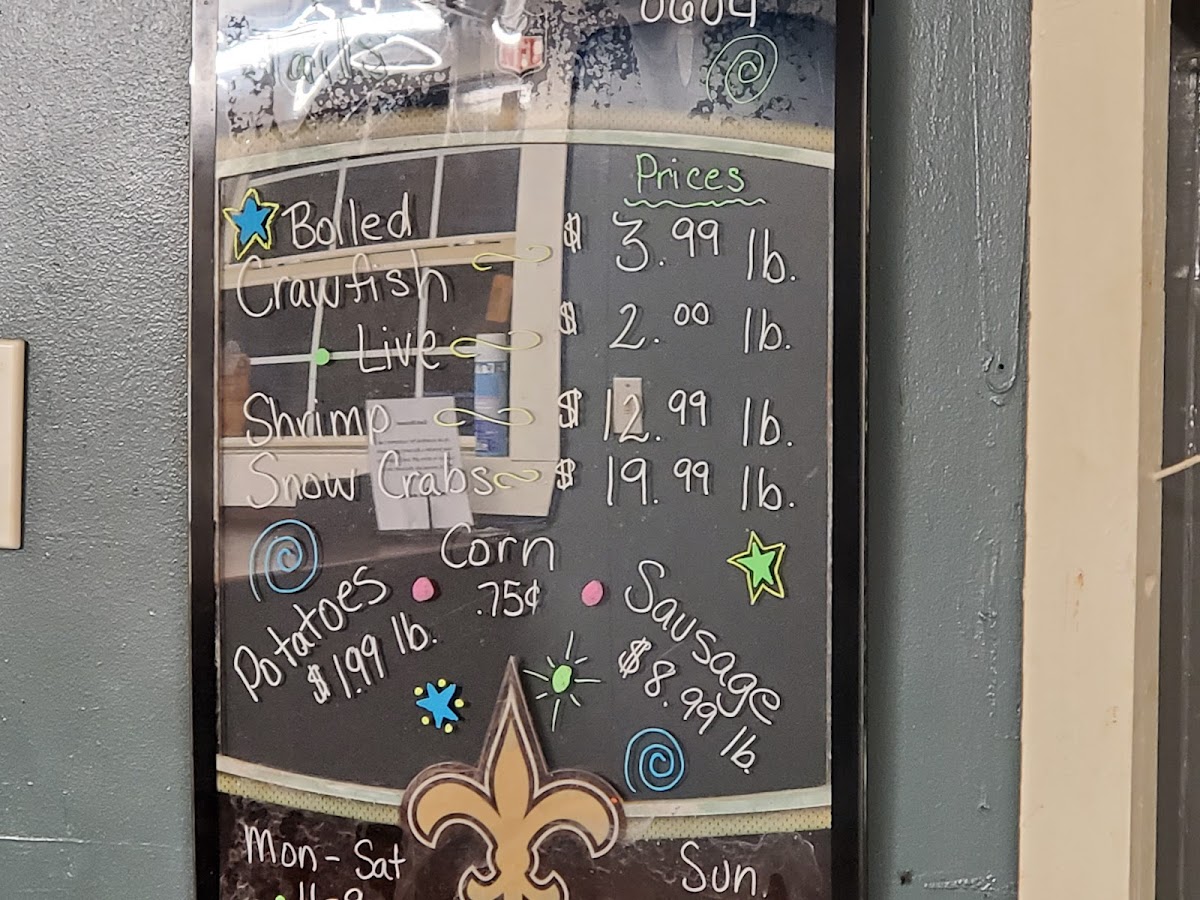 NFL
Prices
Boiled $ 3.99 lb.
Crawfish
Live $ 2.00 lb.
Shrimp $ 12.99 lb.
Snow Crabs $ 19.99 lb.
Corn
.75¢
Potatoes
$1.99 lb.
Sausage
$8.99 lb.
Mon - Sat
Sun.